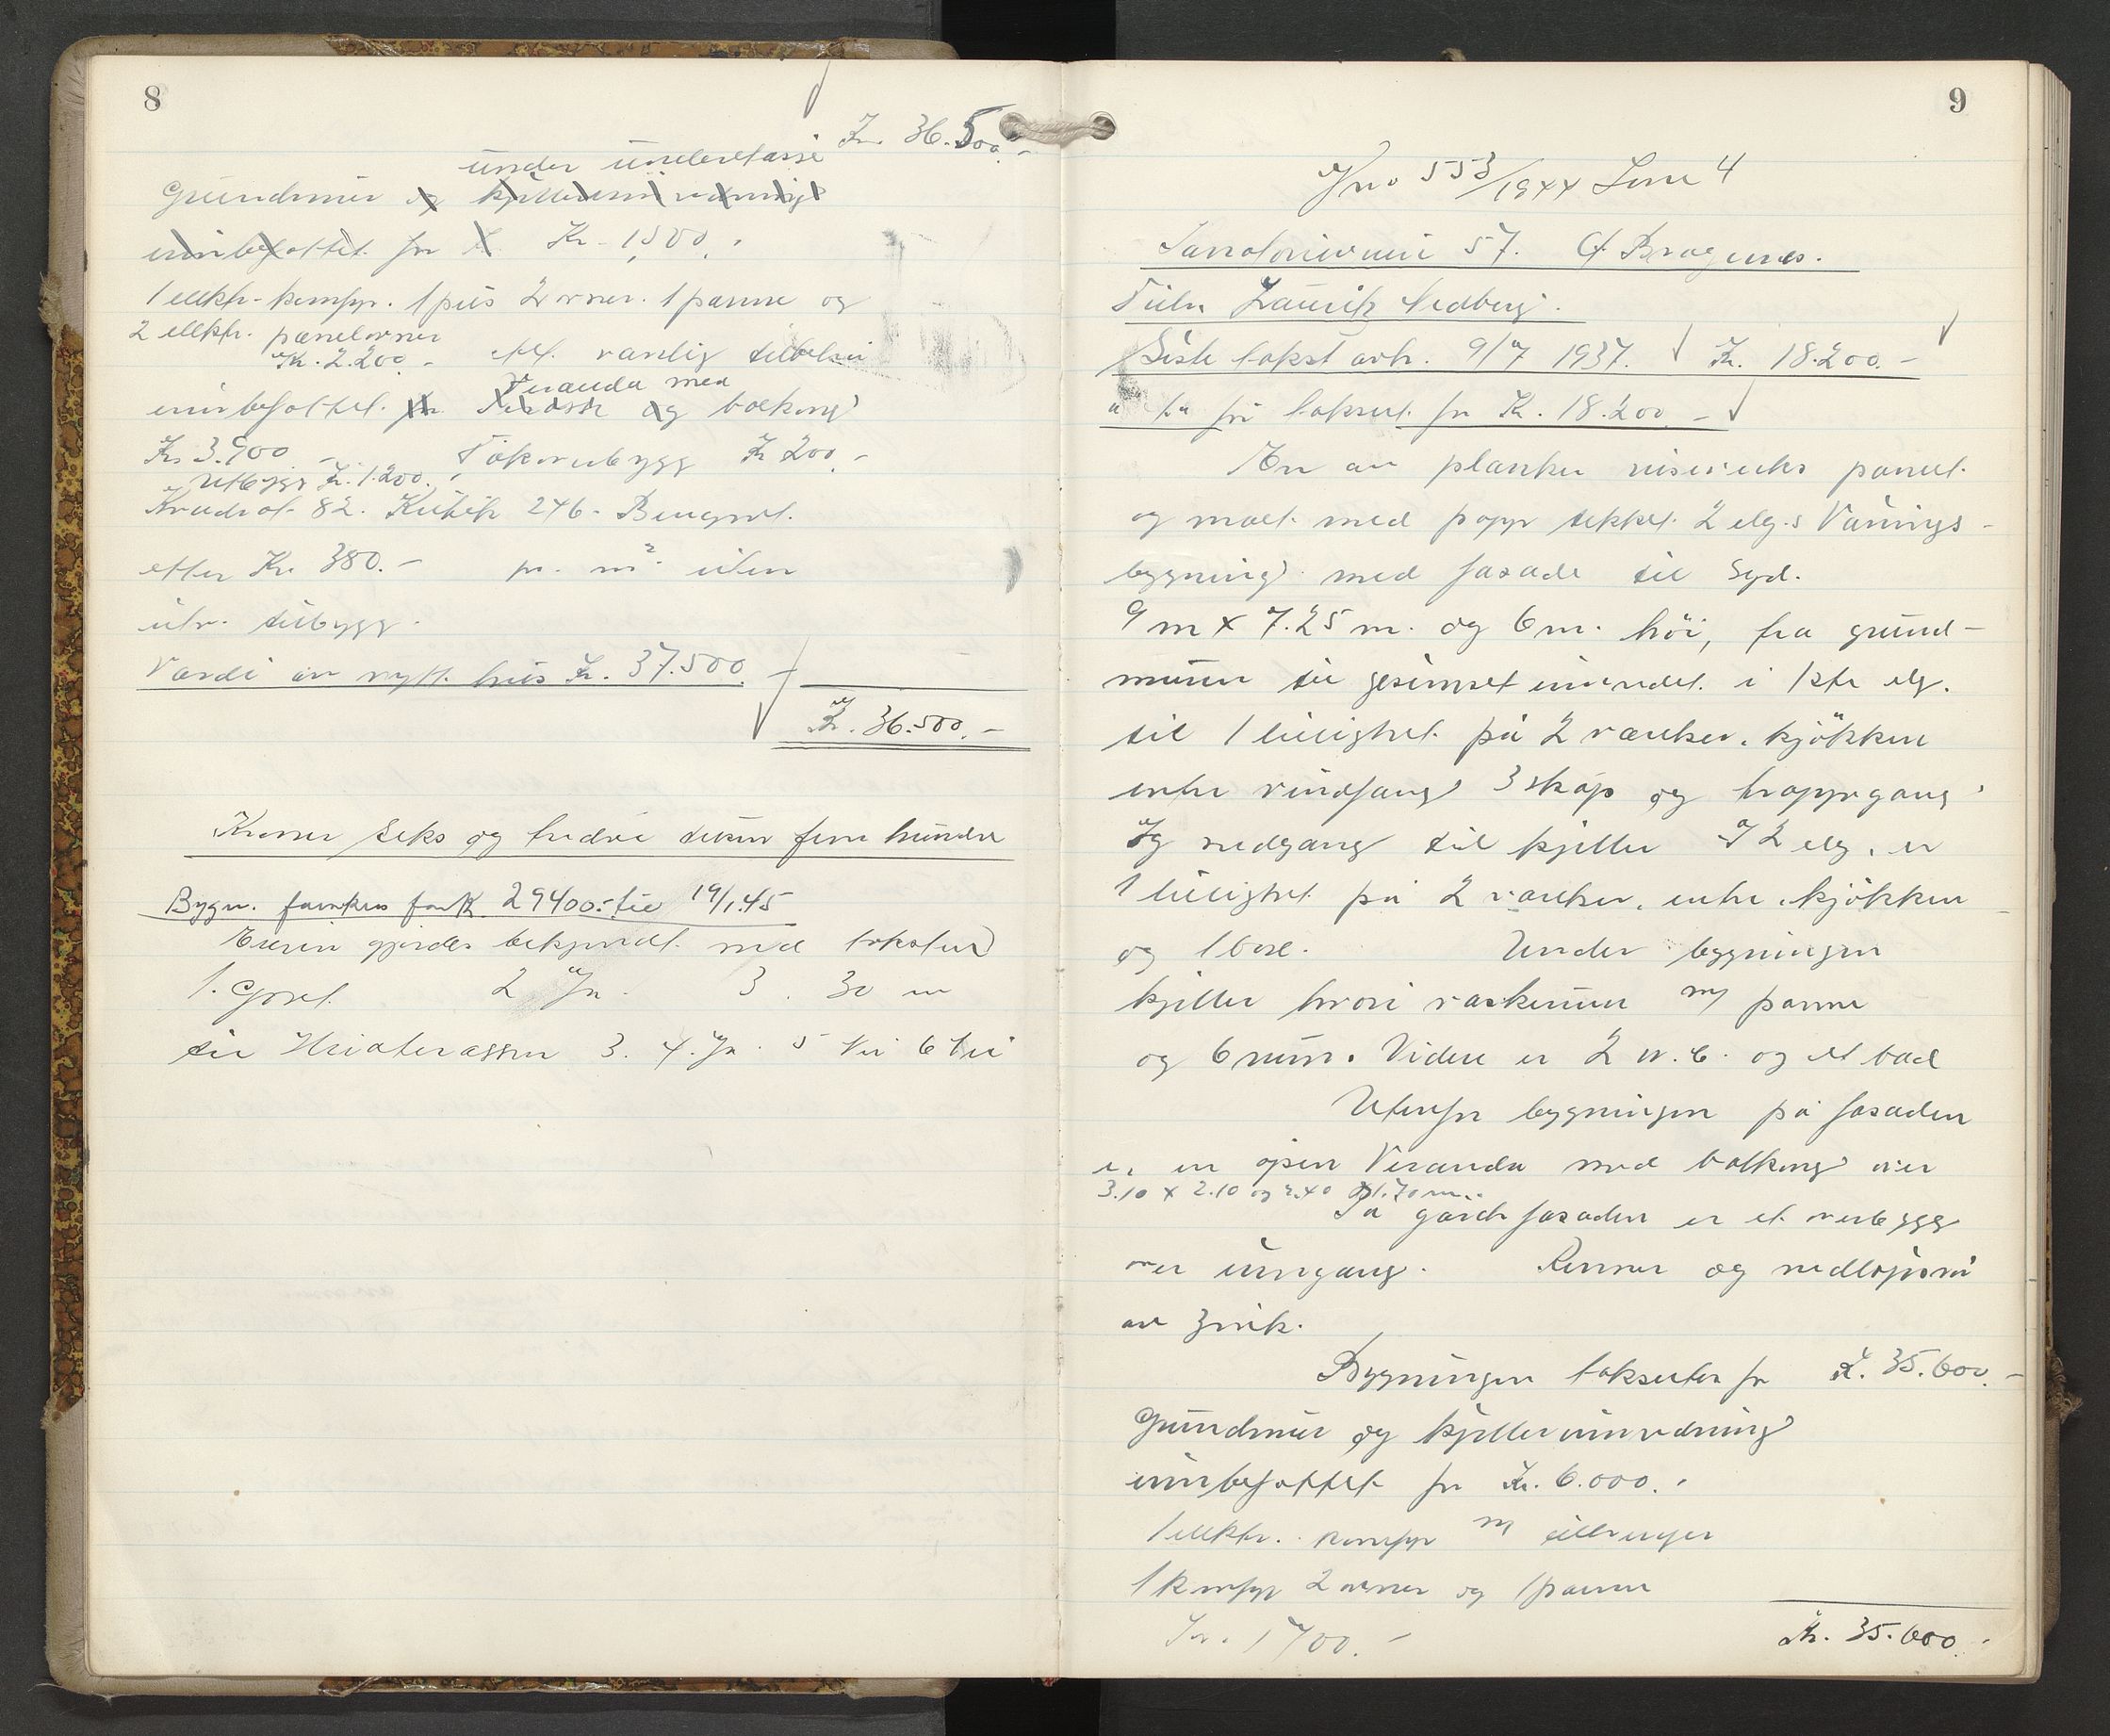 8
Kr. 36.500.-
under underetasje
Grundmur og kjellerinredning
innbefattet for Kr. 1500.-
1 elektr. komfyr. 1 peis 2 ovner. 1 panne og
2 elektr. panelovner
Kr. 2.200.- vanlig
Veranda med
innbefattet. for Terasse og balkong
Kr. 3.900.- Takoverbygg Kr 200.-
Utbygg Kr. 1.200.-
Kvadrat 82. Kubik 246. Beregnet.
etter Kr. 380.- pr. m² uten
utv. tilbygg.
Værdi av nytt hus Kr. 37.500.-
Kr. 36.500.-
Kroner seks og tredve tusen fem hundre
Bygn. forsikres for Kr. 29400.- til 19/1.45
Eieren gjordes bekjendt med taksten
1. Gvrl. 2 Ja. 3. 30 m
til 3. 4. Ja. 5 Nei 6 Nei
9
Jno 553/1944 Sone 4
Sanatorieveien 57. Bragernes.
Tilh. Lauritz Nedberg.
Siste takst avh. 9/7 1937. Kr. 18.200.-
taksert for Kr. 18.200.-
En av planker reisverks panelt
og malt med papp tekket 2 etg.s Vånings-
bygning med fasade til Syd.
9 m x 7.25 m. og 6 m. høi, fra grund-
muren til gesimset innredet i 1ste etg.
til 1 leilighet på 2 værelser, kjøkken
entre vindfang 3 skap og trappegang
Og nedgang til kjeller I 2 etg. er
1 leilighet på 2 værelser, entre, kjøkken
og 1 bod. Under bygningen
kjeller hvori vaskerum m/ panne
og 6 rum. Videre er 2 w.c. og et bad
Utenfor bygningen på fasaden
er en åpen Veranda med balkong over
3.10 x 2.10 og 2.40 x 1.70 m.
På gårdsfasaden er et overbygg
over inngang. Renner og nedløpsrør
av Zink.
Bygningen takseres for Kr. 35.600.-
Grundmur og kjellerinnredning
innbefattet for Kr. 6.000.-
1 elektr. komfyr m/
1 komfyr 2 ovner og 1 panne
Kr. 1700.-
Kr. 35.600.-